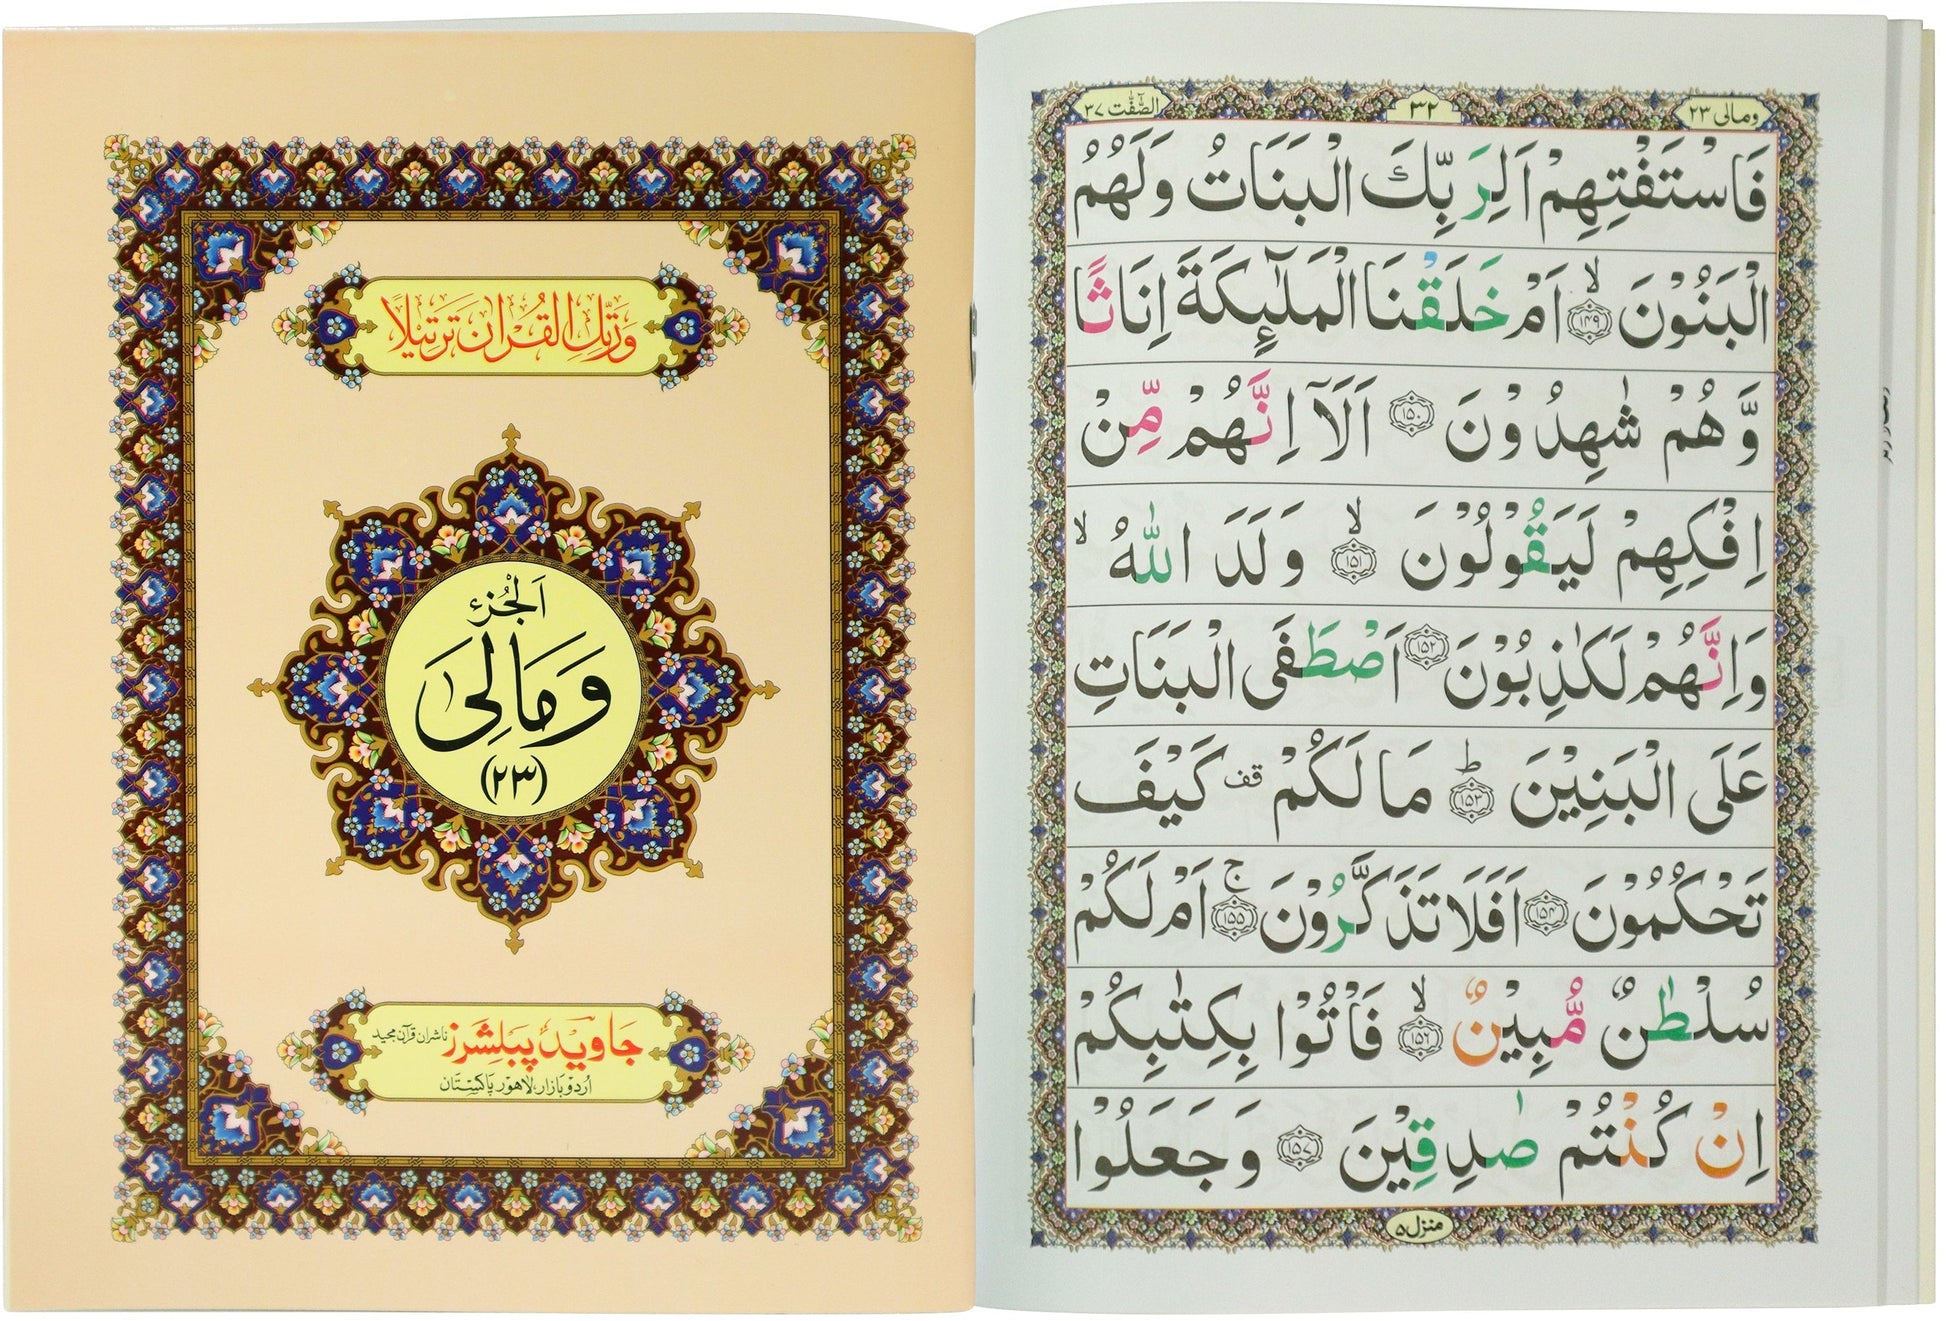 وَرَتِّلِ الْقُرْاٰنَ تَرْتِيْلًا
اَلْجُزْءُ
وَمَالِیَ
(۲۳)
جاوید پبلشرز ناشران قرآن مجید
اُردو بازار، لاهور پاکستان
ومالی ۲۳
۳۲
الصّٰٓفّٰت ۳۷
فَاسْتَفْتِهِمْ اَلِرَبِّكَ الْبَنَاتُ وَلَهُمُ
الْبَنُوْنَ ۙ‏﴿۱۴۹﴾ اَمْ خَلَقْنَا الْمَلٰٓئِكَةَ اِنَاثًا
وَّهُمْ شٰهِدُوْنَ ﴿۱۵۰﴾ اَلَاۤ اِنَّهُمْ مِّنْ
اِفْكِهِمْ لَيَقُوْلُوْنَ ۙ‏﴿۱۵۱﴾ وَلَدَ اللّٰهُ ۙ
وَاِنَّهُمْ لَكٰذِبُوْنَ ﴿۱۵۲﴾ اَصْطَفَى الْبَنَاتِ
عَلَى الْبَنِيْنَ ؕ‏﴿۱۵۳﴾ مَا لَكُمْ قف كَيْفَ
تَحْكُمُوْنَ ﴿۱۵۴﴾ اَفَلَا تَذَكَّرُوْنَ ۚ‏﴿۱۵۵﴾ اَمْ لَكُمْ
سُلْطٰنٌ مُّبِيْنٌ ۙ‏﴿۱۵۶﴾ فَاْتُوْا بِكِتٰبِكُمْ
اِنْ كُنْتُمْ صٰدِقِيْنَ ﴿۱۵۷﴾ وَجَعَلُوْا
منزل ۵